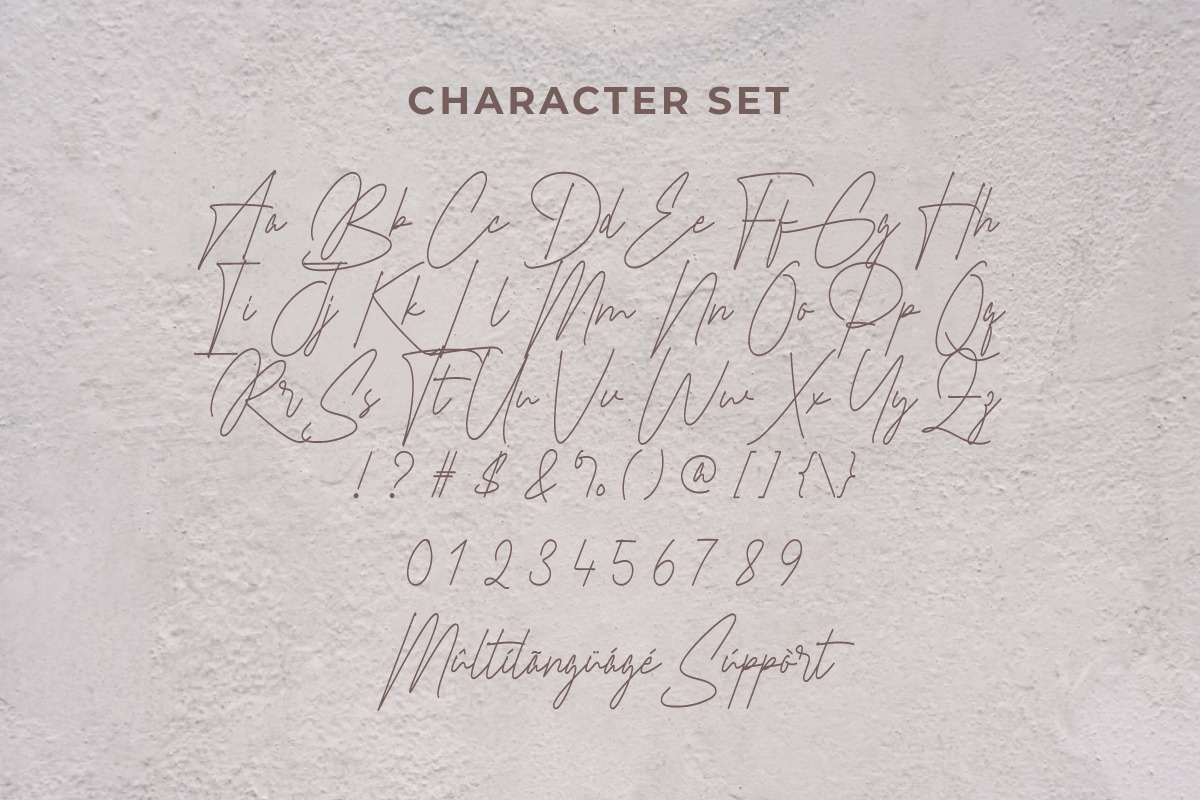 CHARACTER SET
Aa Bb Cc Dd Ee Ff Gg Hh
Ii Jj Kk Ll Mm Nn Oo Pp Qq
Rr Ss Tt Uu Vv Ww Xx Yy Zz
! ? # $ & % ( ) @ [ ] { \ }
0 1 2 3 4 5 6 7 8 9
Mûltílãngüágé Súppòrt